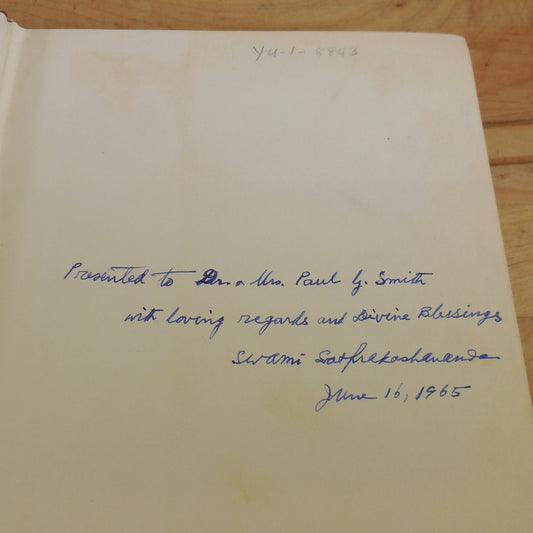 YU-1-8843
Presented to Dr. & Mrs. Paul G. Smith
with loving regards and Divine Blessings
Swami Satprakashananda
June 16, 1965